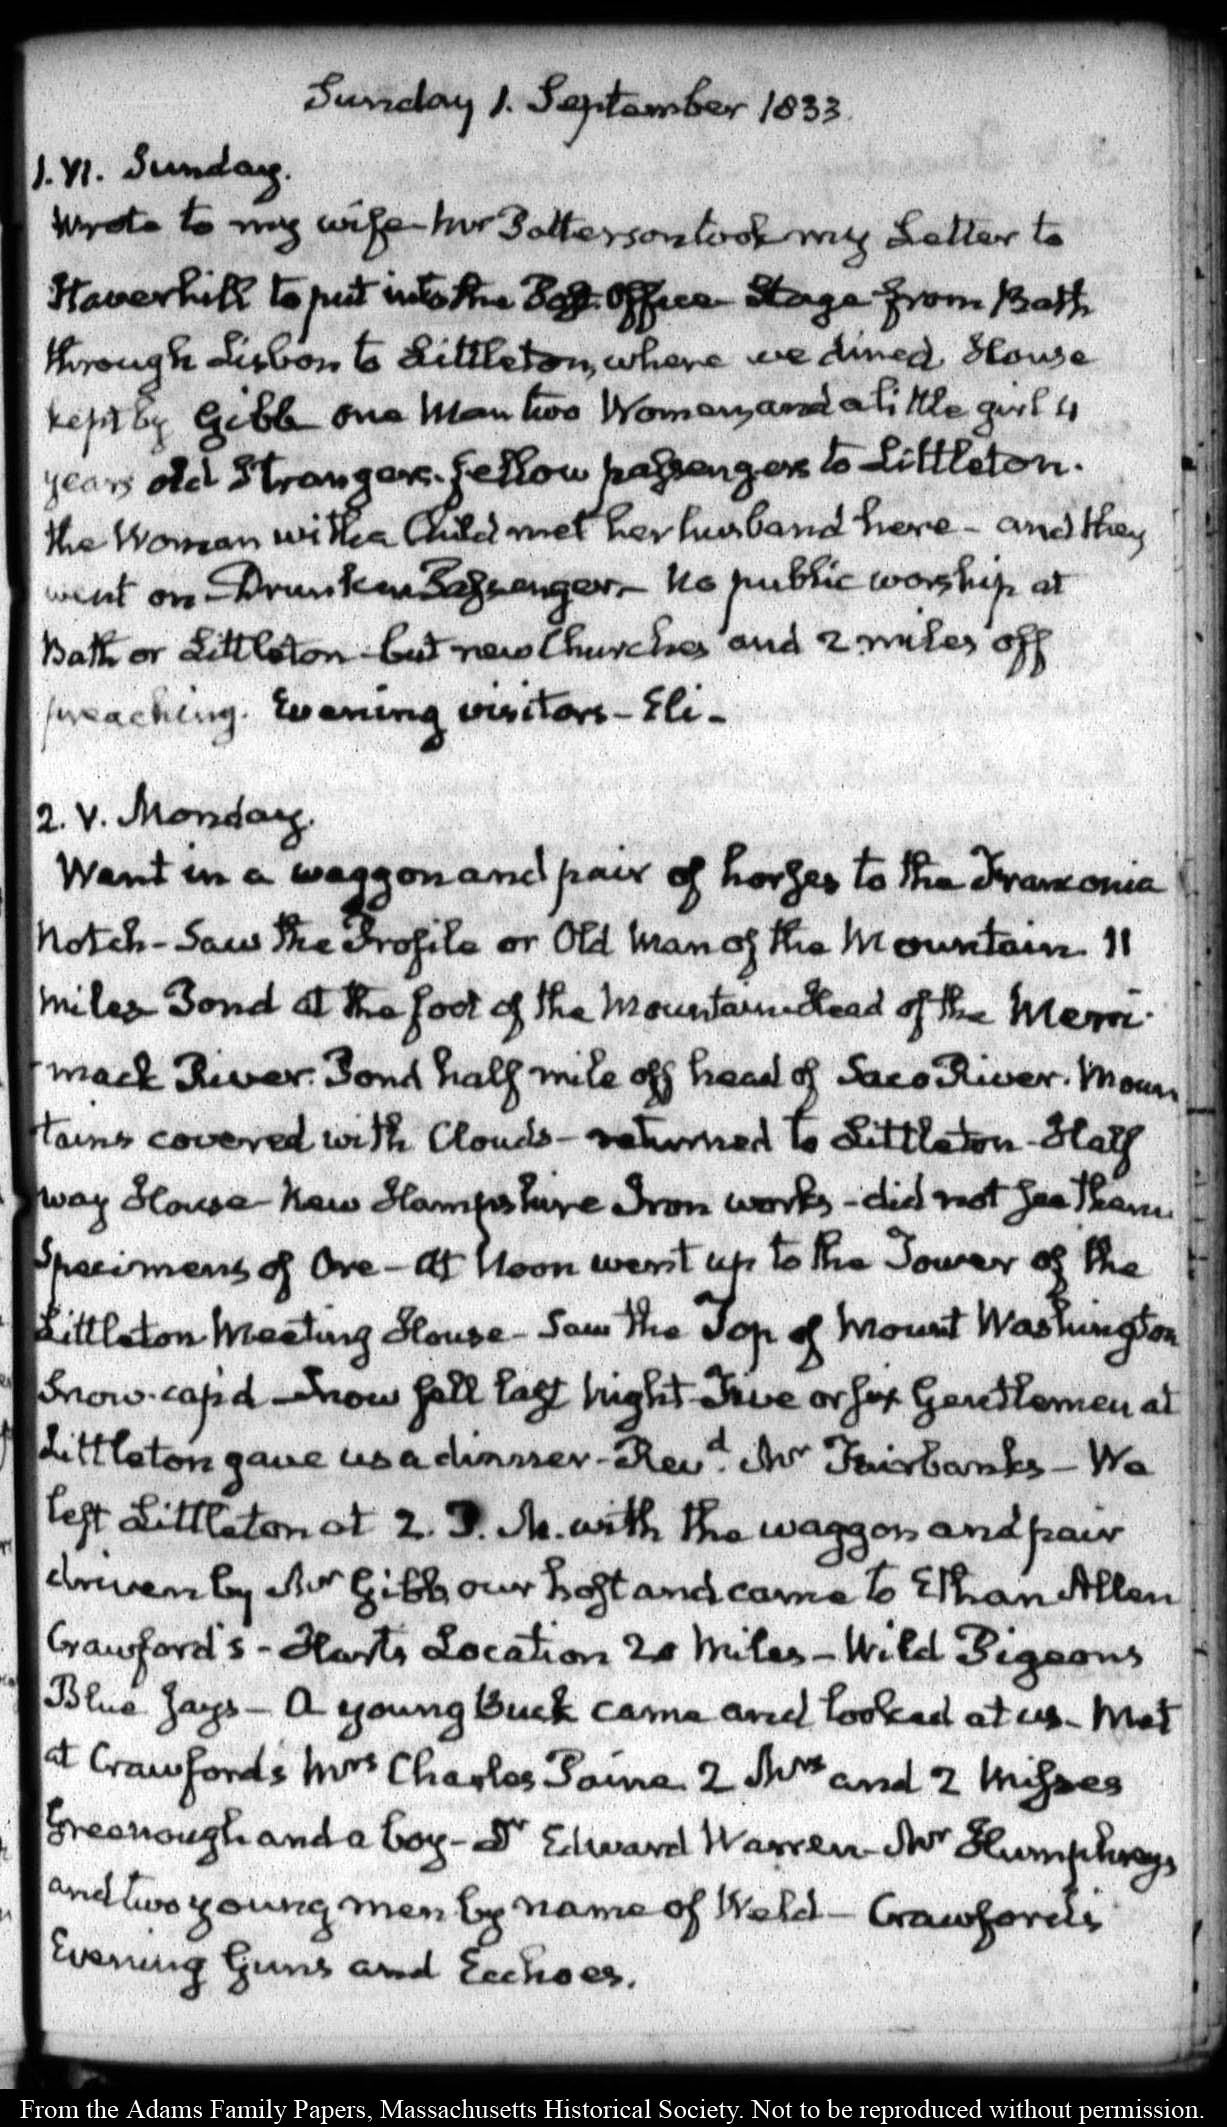 Sunday 1. September 1833.
1. VI. Sunday.
Wrote to my wife - Mr Patterson took my Letter to
Haverhill to put into the Post Office - Stage from Bath
through Lisbon to Littleton, where we dined. House
kept by Gibb - one Man two Women, and a little girl 4
years old Strangers. fellow passengers to Littleton.
the Woman with a Child met her husband here - and they
went on - Drunken Passenger - No public worship at
Bath or Littleton - but new Churches and 2 miles off
preaching. Evening visitors - Eli -
2. V. Monday.
Went in a waggon and pair of horses to the Franconia
Notch - Saw the Profile or Old Man of the Mountain. 11
miles Pond at the foot of the Mountain Head of the Merri-
-mack River. Pond half mile off head of Saco River. Moun
tains covered with Clouds - returned to Littleton - Half
way House - New Hampshire Iron works - did not see them.
Specimens of Ore - At Noon went up to the Tower of the
Littleton Meeting House - Saw the Top of Mount Washington
Snow-cap'd - Snow fell last Night - Five or six Gentlemen at
Littleton gave us a dinner - Revd. Mr Fairbanks - We
left Littleton at 2. P. M. with the waggon and pair
driven by Mr Gibb, our host and came to Ethan Allen
Crawford's - Harts Location 20 Miles - Wild Pigeons
Blue Jays - A young Buck came and looked at us - Met
at Crawford's Mrs Charles Paine 2 Mrs and 2 Misses
Greenough and a boy - Dr Edward Warren - Mr Humphreys
and two young men by name of Weld - Crawford's
Evening Guns and Ecchoes.
From the Adams Family Papers, Massachusetts Historical Society. Not to be reproduced without permission.